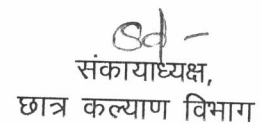 Sd -
संकायाध्यक्ष,
छात्र कल्याण विभाग